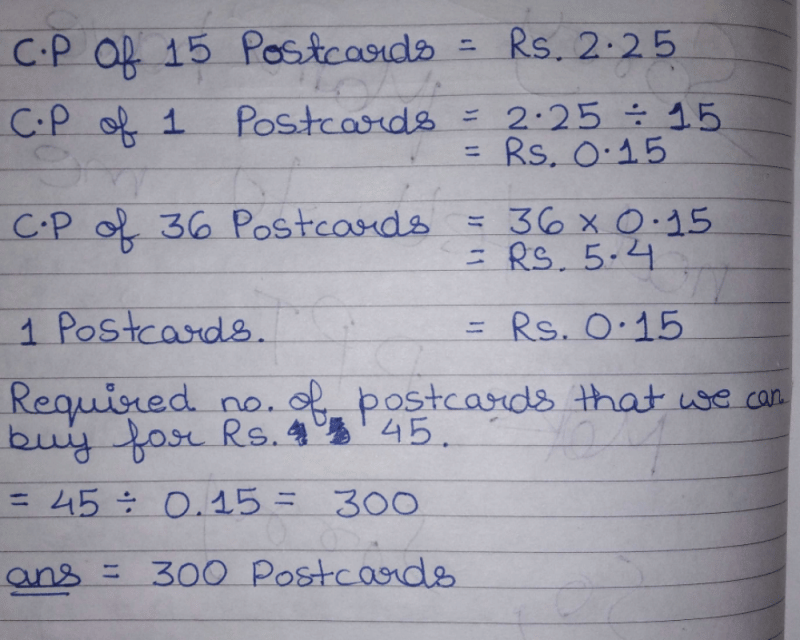 C.P Of 15 Postcards = Rs. 2.25
C.P of 1 Postcards = 2.25 ÷ 15
= Rs. 0.15
C.P of 36 Postcards = 36 x 0.15
= Rs. 5.4
1 Postcards. = Rs. 0.15
Required no. of postcards that we can
buy for Rs. 45.
= 45 ÷ 0.15 = 300
ans = 300 Postcards